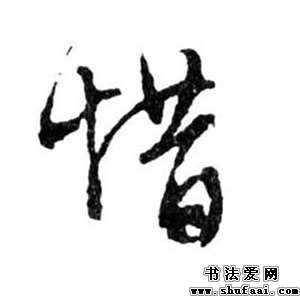 惜
书法爱网
www.shufaai.com